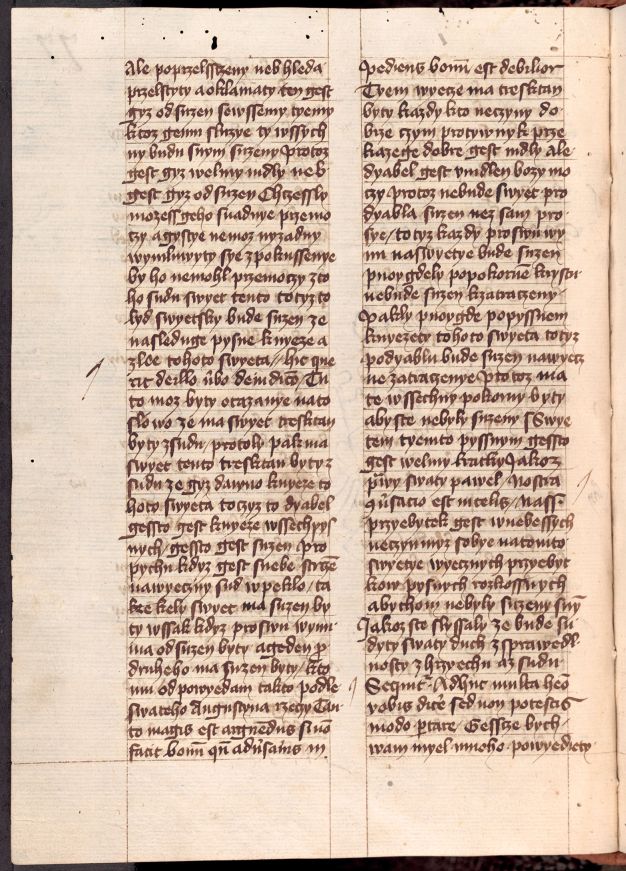 Ale poprzelssczeny neb hleda
przelstyty a oklamaty ten gest
gyz od suzen sewssemy tyemy
ktoz gemu sluzye ty wssych
ny budu snym suzeny Protoz
gest gyz welmy mdly neb
gest gyz od suzen Chczessly
mozess geho snadnye przemo
czy a gystye nemoz nyzadny
wymluwyty sye z pokussenye
by ho nemohl przemoczy z to
ho sudu swyet tento totyz to
lyd swyetsky bude suzen ze
nasleduge pysne knyeze a
zlee tohoto swyeta / hic que
rit de illo verbo dein dicto Tu
to moz byty otazanye na to
slowo ze ma swyet tresktan
byty z sudu / protoly pak ma
swyet tento tresktan byty z
sudu ze gyz dawno knyeze to
hoto swyeta toczyz to dyabel
gessto gest knyeze wssechnys
nych / gessto gest suzen / pro
pychu kdyz gest s nebe strzen
na wyeczny sud w peklo / ta
kze kely swyet ma suzen by
ty wssak kdyz prosiwu wyni
ma od suzen byty a geden p
druheho ma suzen byty / kto
mu odpowyedam takto podle
swateho Augustyna rzeczy Tan
to magis est arguendus si non
facit bonum quam aduersarius im
pediens bonum est debilior
Tyem wyecze ma tresktan
byty kazdy kto neczyny do
brze czym protywnyk prze
kazege dobre gest mdly Ale
dyabel gest vmdlen bozy mo
czy Protoz nebude swyet pro
dyabla suzen nez sam pro
sye / totyz kazdy pro swu wy
nu na swyetye bude suzen
pnoygdely po pokornem krystu
nebude suzen k zatraczeny
Pakly pnoygde po pyssnem
knyezety tohoto swyeta totyz
po dyablu bude suzen na wyecz
ne zatraczenye Protoz ma
te wssechny pokorny byty
abyste nebyly suzeny s Swye
tem tyemto pyssnym gessto
gest welmy kratky Jakoz
prawy swaty pawel / Nostra
conuersacio est in celis / Nass
przyebytek gest w nebessych
neczynmyz sobye na tomto
swyetye wyecznych przyebyt
kow pysnych rozkossnych
abychom nebyly suzeny s nym
Jakoz ste slyssaly ze bude su
dyty swaty duch z sprawedl
nosty z hrzyechu a z sudu
Sequitur Adhuc multa habeo
vobis dicere sed non potestis
modo portare / Gessczye bych
wam myel mnoho powyedyety